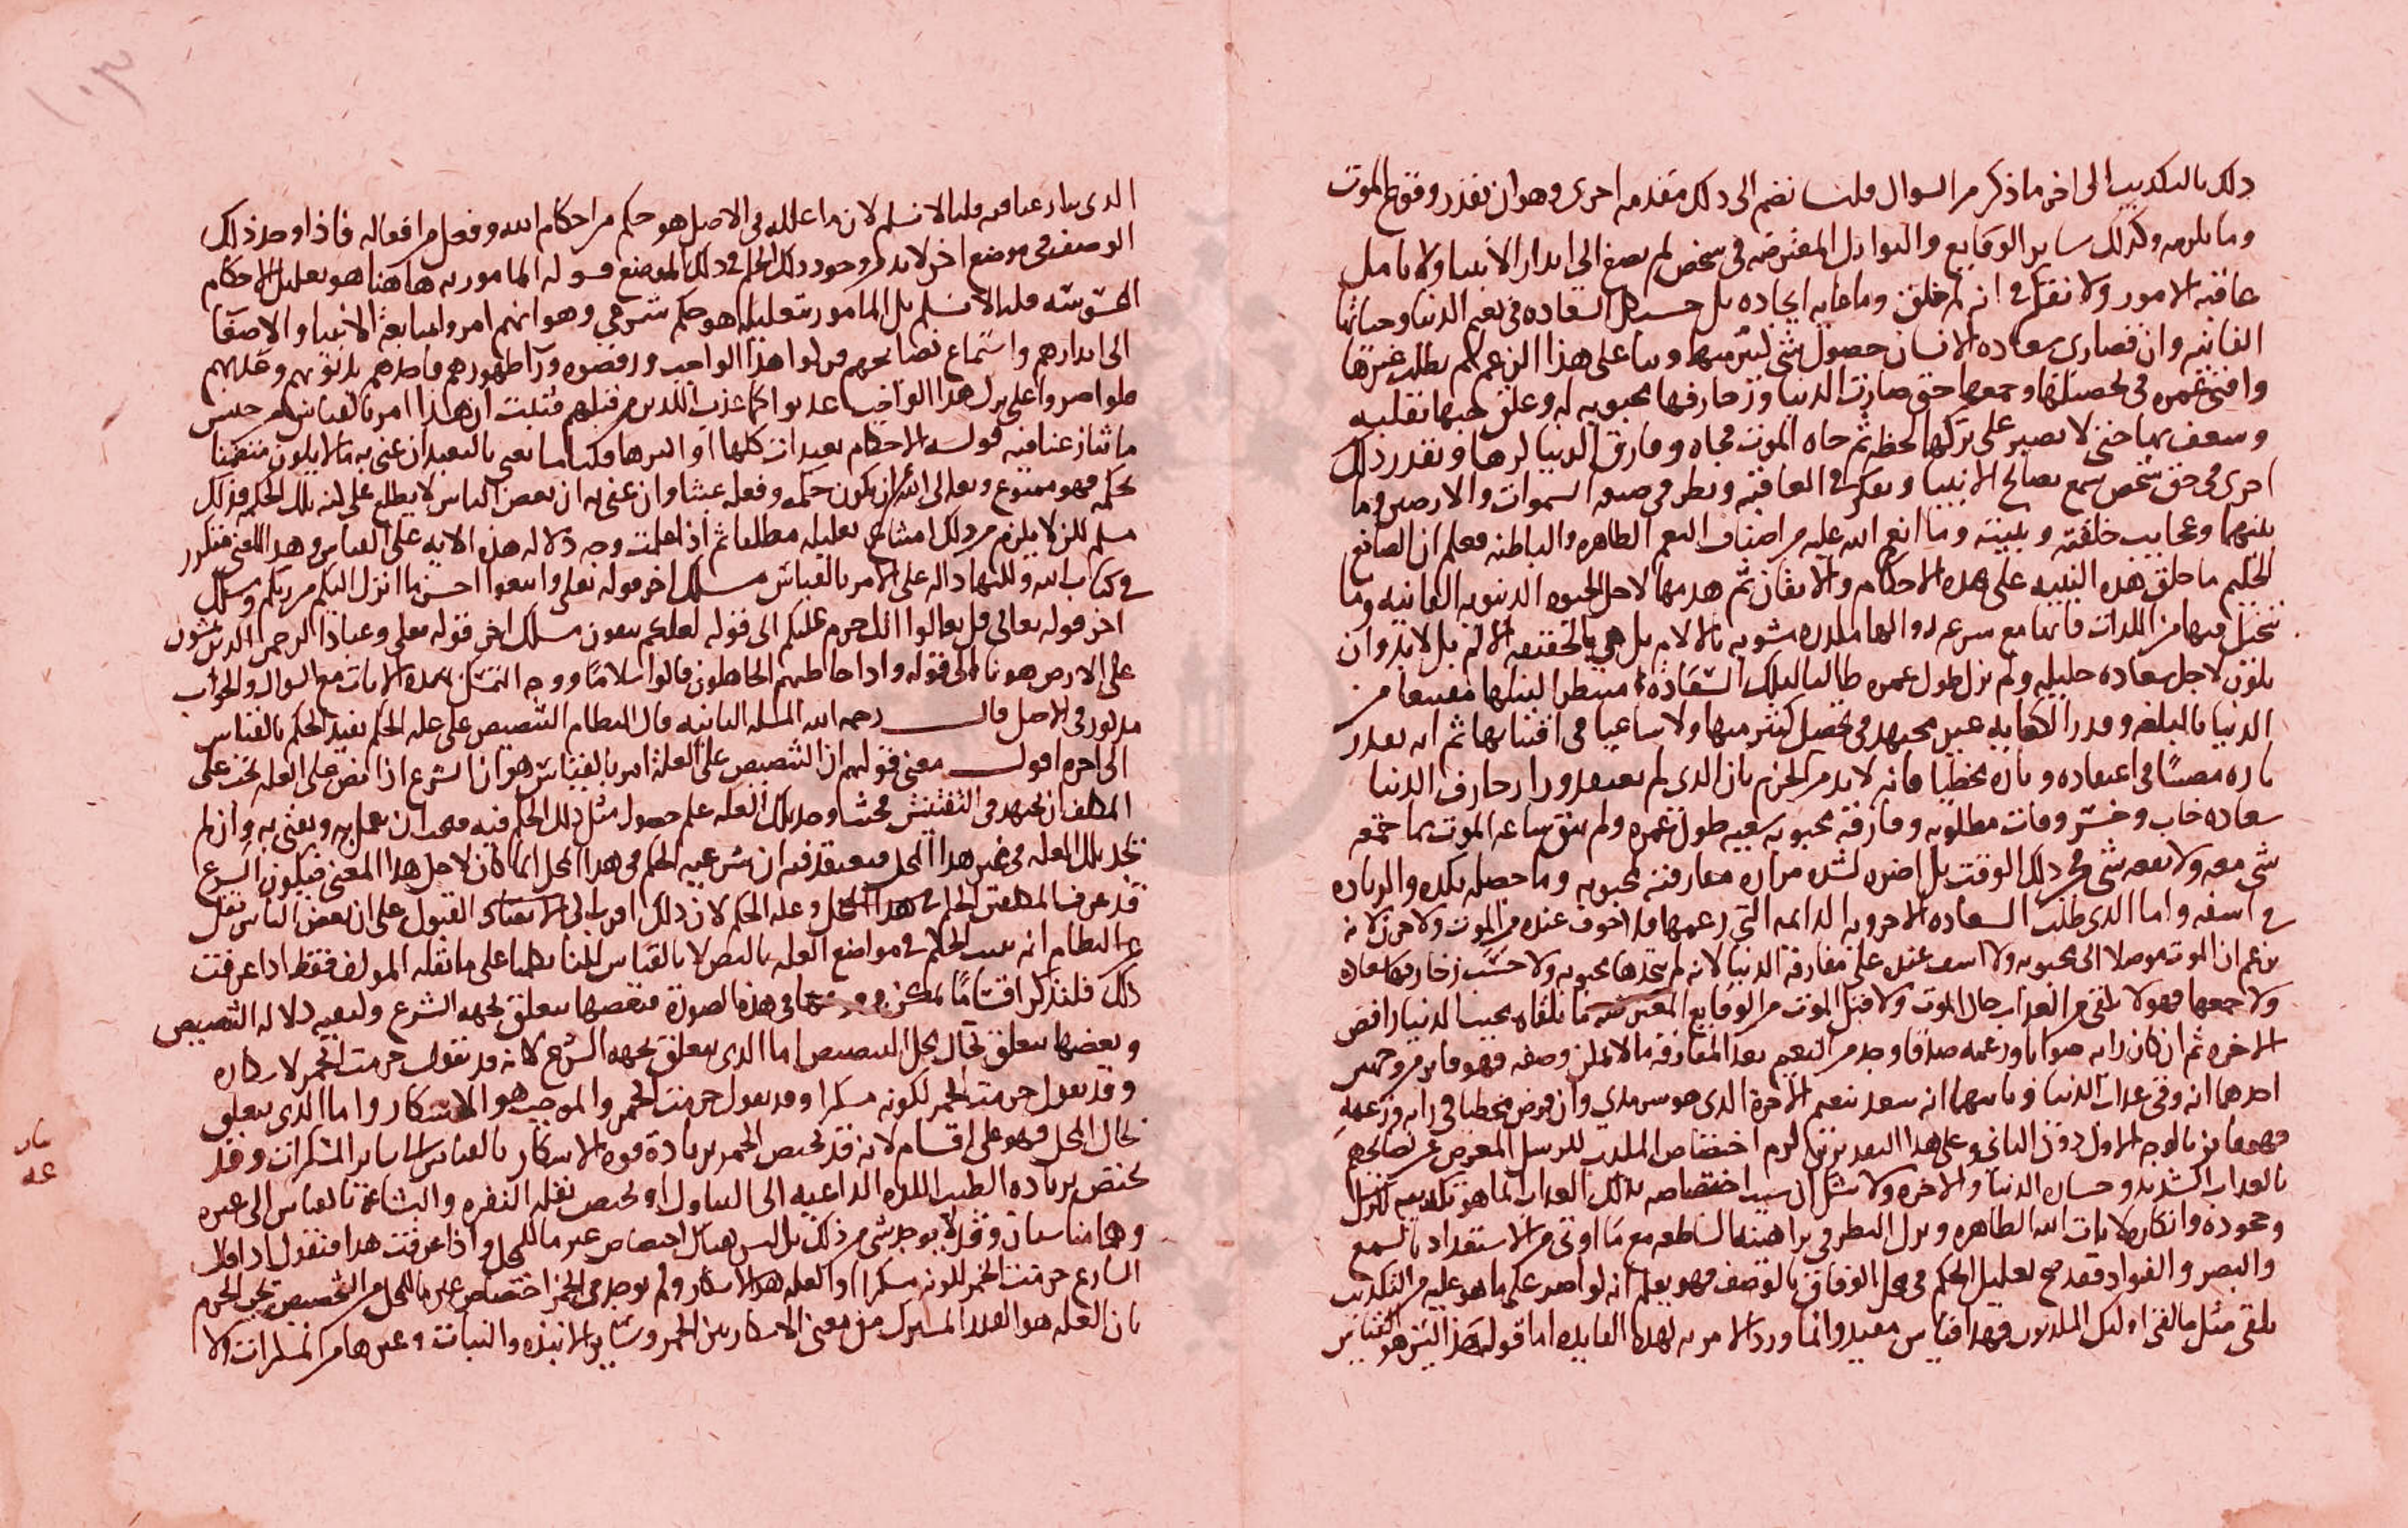 ذلك بالتكذيب الى اخر ما ذكر من السوال قلنا نضم الى ذلك مقدمه اخرى وهو ان نقدر وقوع الموت
وما يلزمه وكذلك ساير الوقايع والنوازل المفترضه فى شخص لم يصغ الى انذار الانبيا ولا تامل
عاقبه الامور ولا تفكر فى انه لم خلق وما غايه ايجاده بل حسب كل السعاده فى نعيم الدنيا وحياتها
الفانيه وان قصارى سعاده الانسان حصول شى كثير منها وبنا على هذا الزعم لم يطلب غيرها
وافنى عمره فى تحصيلها وجمعها حتى صارت الدنيا وزخارفها محبوبه له وعلق حبها بقلبه
وشغف بها حتى لا يصبر على تركها لحظه ثم جاه الموت فجاه وفارق الدنيا كرها ونقدر ذلك
اخرى فى حق شخص سمع نصايح الانبيا وتفكر فى العاقبه ونظر فى صنعه السموات والارضين وما
بينهما وعجايب خلقته وبنيته وما انعم الله عليه من اصناف النعم الظاهره والباطنه فعلم ان الصانع
الحكيم ما خلق هذه البنيه على هذه الاحكام والاتقان ثم هدمها لاجل الحيوه الدنيويه الفانيه وما
يتخيل فيها من اللذات فانها مع سرعه زوالها مكدره مشوبه بالالام بل هى بالحقيقه الالم بل لا بد وان
يكون لاجل سعاده جليله ولم يزل طول عمره طالبا لتلك السعاده منتظرا لنيلها مقتنعا من
الدنيا بالبلغه وقدر الكفايه غير مجتهد فى تحصيل كثير منها ولا ساعيا فى اقتنايها ثم انه نقدر
تاره مصيبا فى اعتقاده وتاره مخطيا فانه لا بد من الجزم بان الذى لم يعتقد ورا زخارف الدنيا
سعاده خاب وخسر وفات مطلوبه وفارقه محبوبه سعيه طول عمره ولم يبق ساعه الموت مما جمعه
شى معه ولا نفعه شى فى ذلك الوقت بل اضره لشده مراره مفارقته محبوبه وما حصله بكده والزياده
فى اسفه واما الذى طلب السعاده الاخرويه الدايمه التى زعمها فلا خوف عنده من الموت ولا حزن لانه
يزعم ان الموت موصلا الى محبوبه ولا اسف عنده على مفارقه الدنيا لانه لم يتخذها محبوبه ولا حسب زخارفها سعاده
ولا جمعها فهو لا يلقى من العذاب حال الموت ولا قبل الموت من الوقايع المفترضه ما يلقاه محب الدنيا رافض
الاخره ثم ان كان رايه صوابا وزعمه صدقا وجد من النعيم بعد المفارقه ما لا يمكن وصفه فهو فايز من وجهين
احدهما انه وقى عذاب الدنيا وثانيهما انه سعد بنعيم الاخرة الذى هو سرمدي وان فرض مخطيا فى رايه وزعمه
فهو فايز بالوجه الاول دون الثانى وعلى هذا التقدير يلزم اختصاص المكذب للرسل المعرض عن نصايحهم
بالعذاب الشديد وخساره الدنيا والاخره ولا شك ان سبب اختصاصه بذلك العذاب انما هو تكذيبه للرسل
وجحوده وانكاره لايات الله الظاهره وترك النظر فى براهينه الساطعه مع ما اوتى من الاستعداد بالسمع
والبصر والفواد فقد صح تعليل الحكم فى محل الوفاق بالوصف فهو يعلم انه لو اصر على ما هو عليه من التكذيب
يلقى مثل ما لقى اوليك المكذبون فهذا قياس مفيد وانما ورد الامر به لهذه الفايده اما قوله هذا ليس هو القياس
الذى تنازعنا فيه قلنا لا نسلم لان ما علله فى الاصل هو حكم من احكام الله وفعل من افعاله فاذا وجد ذلك
الوصف فى موضع اخر لا بد من وجود ذلك الحكم فى ذلك الموضع قوله المامور به هاهنا هو تعليل الاحكام
الثبوتيه قلنا لا نسلم بل المامور بتعليله هو حكم شرعي وهو انهم امروا بمتابعة الانبيا والاصغا
الى انذارهم واستماع نصايحهم فتركوا هذا الواجب ورفضوه ورآ ظهورهم فاخذهم بذنوبهم وعذبهم
فلو اصروا على ترك هذا الواجب عذبوا كما عذب الذين من قبلهم فثبت ان هذا امر بالقياس من جنس
ما تنازعنا فيه قوله الاحكام تعبدات كلها او اكثرها قلنا ما تعنى بالتعبد ان عنى به ما لا يكون متضمنا
لحكمه فهو ممنوع وتعالى الله ان يكون حكمه وفعله عبثا وان عنى به ان بعض الناس لا يطلع على كنه تلك الحكم فذلك
مسلم لكن لا يلزم من ذلك امتناع تعليله مطلقا ثم اذا علمت وجه دلاله هذه الايه على القياس وهذا المعنى متكرر
فى كتاب الله وكلها داله على الامر بالقياس مسلك اخر قوله تعلى واتبعوا احسن ما انزل اليكم من ربكم ومسلك
اخر قوله تعالى قل تعالوا اتل ما حرم عليكم الى قوله لعلكم تتقون مسلك اخر قوله تعلى وعباد الرحمن الذين يمشون
على الارض هونا الى قوله واذا خاطبهم الجاهلون قالوا سلامًا ووجه التمسك بهذه الايات مع السوال والجواب
مذكور فى الاصل قال رحمه الله المسله الثانيه قال النظام التنصيص على عله الحكم يفيد الحكم بالقياس
الى اخره اقول معنى قولهم ان التنصيص على العلة امر بالقياس هو ان الشرع اذا نص على العله يجب على
المكلف ان يجتهد فى التفتيش فحيثما وجد تلك العله علم حصول مثل ذلك الحكم فيه فيجب ان يعمل به ويفتى به وان لم
يجد تلك العله فى غير هذا المحل فيعتقد فيه ان شرعيه الحكم فى هذا المحل انما كان لاجل هذا المعنى فيكون الشرع
قد عرف المكلفين الحكم فى هذا المحل وعله الحكم لان ذلك اقرب الى الانقياد القبول على ان بعض الناس نقل
عن النظام انه يثبت الحكم فى مواضع العله بالنص لا بالقياس لكنا تكلمنا على ما نقله المولف فقط اذا عرفت
ذلك فلنذكر اقسامًا يمكن فى هذه الصورة فبعضها يتعلق بجهه الشرع وكيفيه دلاله التنصيص
وبعضها يتعلق بحال محل التنصيص اما الذى يتعلق بجهه الشرع لانه قد نقول حرمت الخمر لاسكاره
وقد نقول حرمت الخمر لكونه مسكرا وقد نقول حرمت الخمر والموجب هو الاسكار واما الذى يتعلق
بحال المحل فهو على اقسام لانه قد يختص الخمر بزيادة قوه الاسكار بالقياس الى ساير المسكرات وقد
يختص بزياده الطيب اللذه الداعيه الى التناول او يختص بقله النفره والبشاعة بالقياس الى غيره
وهما متناسبان وقد لا يوجد شى من ذلك بل ليس هناك اختصاص غير ما للمحل واذا عرفت هذا فنقول اذا قال
الشارع حرمت الخمر لكونه مسكرا او العله هو الاسكار ولم يوجد فى الخمر اختصاص غير ما للمحل من التخصيص يجب الجزم
بان العله هو القدر المشترك من معنى الاسكار بين الخمر وساير الانبذه والنباتات وغيرها من المسكرات والا